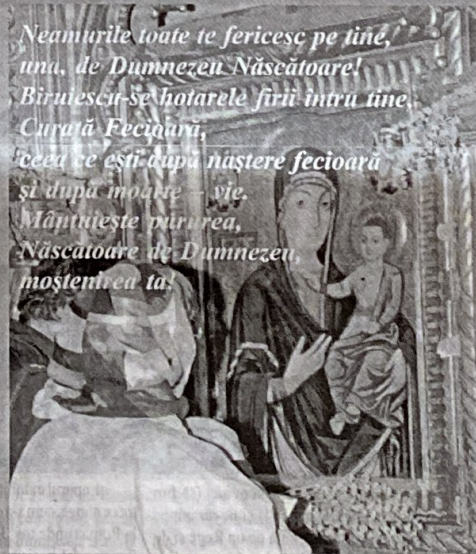 Neamurile toate te fericesc pe tine,
una, de Dumnezeu Născătoare!
Biruiescu-se hotarele firii întru tine,
Curată Fecioară,
ceea ce ești după naștere fecioară
și după moarte – vie.
Mântuiește pururea,
Născătoare de Dumnezeu,
moștenirea ta!